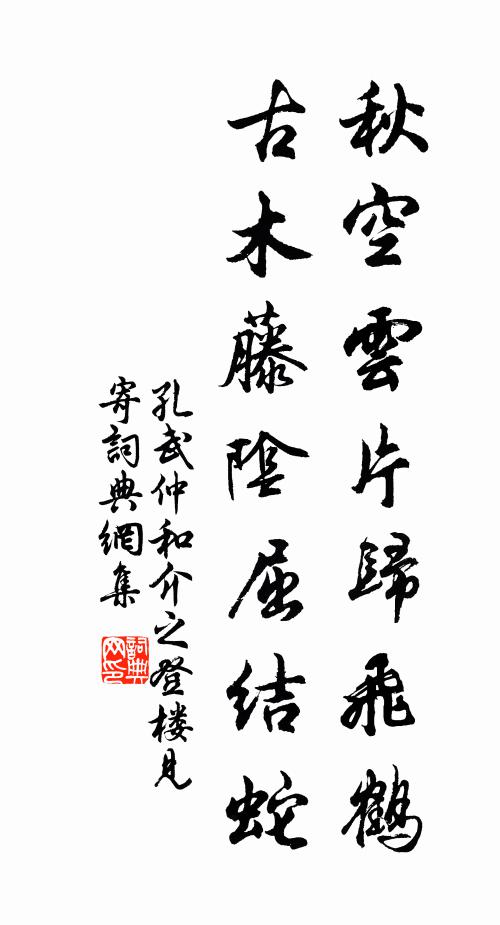 秋空雲片歸飛鶴
古木藤陰屈結蛇
孔武仲和介之登楼見
寄詞典網集
詞典网印